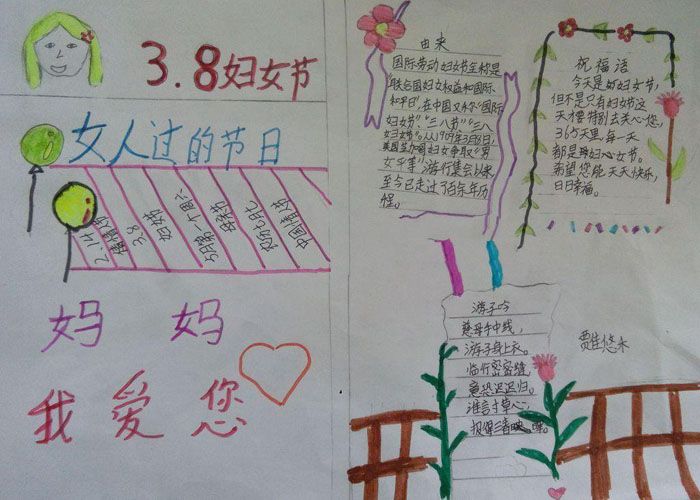 3.8妇女节
女人过的节日
2.14
情人节
3.8
妇女节
5月第一个周六
母亲节
农历七月七
中国情人节
妈 妈
我 爱 您
由来
国际劳动妇女节全称是
"联合国妇女权益和国际
和平日",在中国又称"国际
妇女节""三八节""三八
妇女节"。从1909年3月8日,
美国芝加哥妇女争取"男
女平等"游行集会以来,
至今已走过了百余年历
程。
祝福语
今天是妇女节,
但不是只有妇女节这
天才懂特别去关心您,
365天里,每一天
都是妇女节。
希望您能天天快乐,
日日幸福。
游子吟
慈母手中线,
游子身上衣。
临行密密缝,
意恐迟迟归。
谁言寸草心,
报得三春晖。